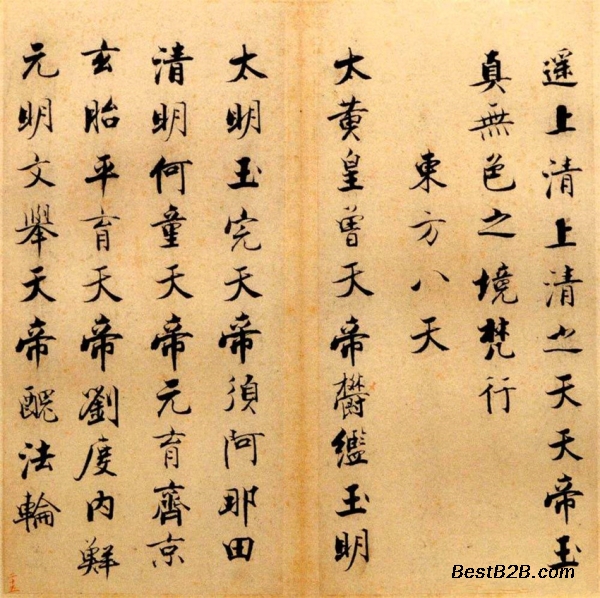 遥上清上清之天天帝玉
真無色之境梵行
東方八天
太黄皇曾天帝欝繿玉明
太明玉完天帝須阿那田
清明何童天帝元育齊京
玄胎平育天帝劉度内鮮
元明文舉天帝醜法輪
BestB2B.com